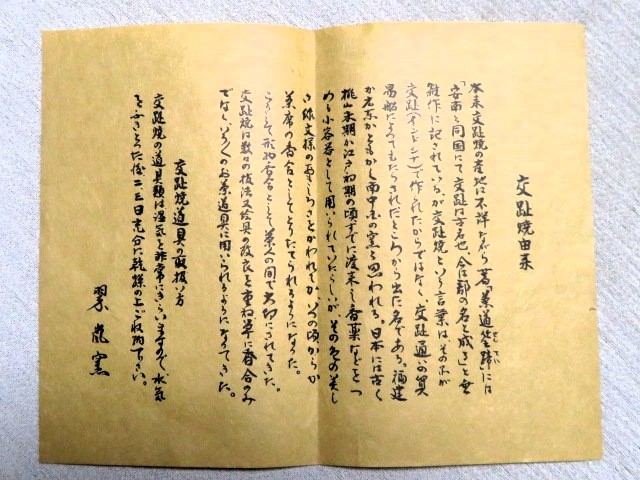 交趾焼由来
本来交趾焼の産地は不詳ながら著「茶道筌蹄」には
せんてい
「安南と同国にて交趾は古名也、今は郡の名と成る」と
雑作に記されているが交趾焼という言葉は、そのものが
交趾(インドシナ)で作られたからではなく、交趾通いの貿
易船によってもたらされたところから出た名である。福建
か広東かともかく南中国の窯と思われる。日本には古く
桃山末期か江戸初期の頃すでに渡来し香薬などをつ
めた小容器として用いられていたらしいが、その色の美し
さ、線文様のおもしろさをかわれてか、いつの頃からか
茶席の香合としてとりたてられるようになった。
こうして形物香合として茶人の間で大切にされてきた。
交趾焼は数々の技法又絵具の改良を重ね単に香合のみ
でなく、いろいろのお茶道具に用いられるようになってきた。
交趾焼道具の取扱い方
交趾焼の道具類は湿気を非常にきらいますので、水気
をふきとった後二三日充分に乾燥の上ご収納下さい。
翠嵐窯